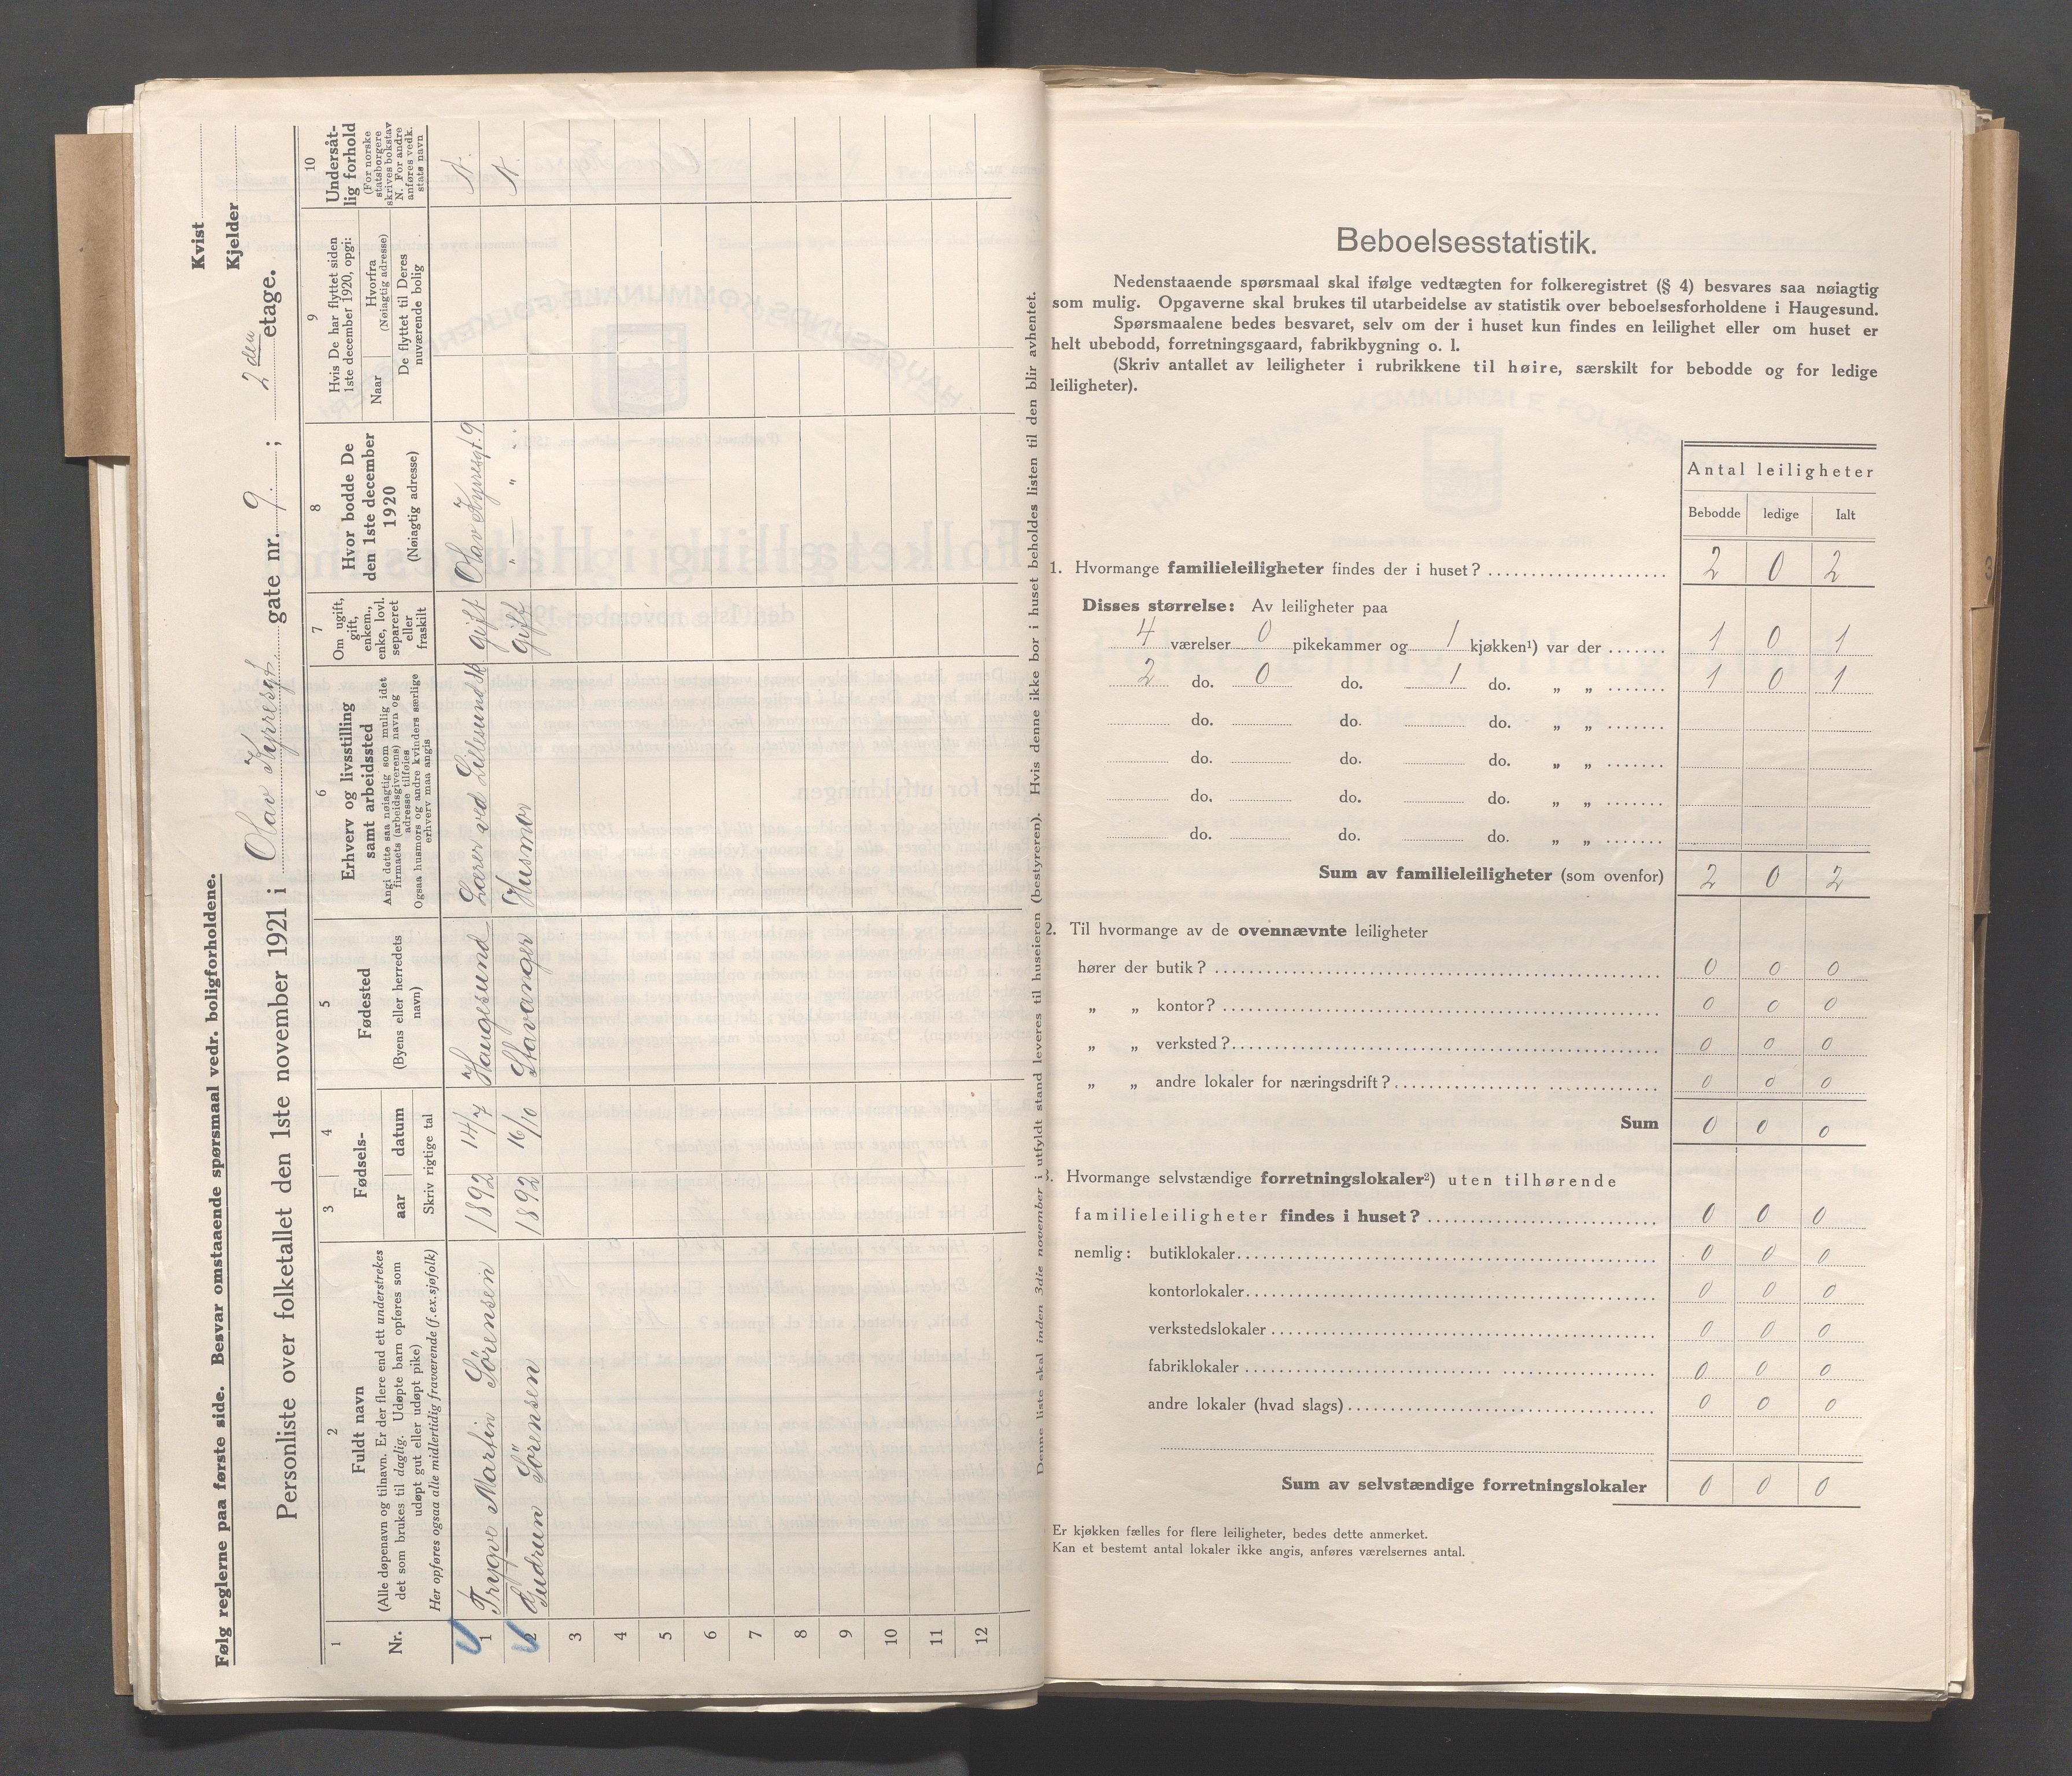 Følg reglerne paa første side. Besvar omstaaende spørsmaal vedr. boligforholdene.
Kvist
Kjelder
Personliste over folketallet den 1ste november 1921 i Olav Kyrresgt. gate nr. 9 ; 2den etage.
1
Nr.
2
Fuldt navn
(Alle døpenavn og tilnavn. Er der flere end ett understrekes
det som brukes til daglig. Udøpte barn opføres som
udøpt gut eller udøpt pike)
Her opføres ogsaa alle midlertidig fraværende (f. ex. sjøfolk)
3
4
Fødsels-
aar
datum
Skriv rigtige tal
5
Fødested
(Byens eller herredets
navn)
6
Erhverv og livsstilling
samt arbeidssted
Angi dette saa nøiagtig som mulig idet
firmaets (arbeidsgiverens) navn og
adresse tilføies
Ogsaa husmors og andre kvinders særlige
erhverv maa angis
7
Om ugift,
gift,
enkem.,
enke, lovl.
separeret
eller
fraskilt
8
Hvor bodde De
den 1ste december
1920
(Nøiagtig adresse)
9
Hvis De har flyttet siden
1ste december 1920, opgi:
Naar
Hvorfra
(Nøiagtig adresse)
De flyttet til Deres
nuværende bolig
10
Undersåt-
lig forhold
(For norske
statsborgere
skrives bokstav
N. For andre
anføres vedk.
stats navn
1 Trygve Martin Sörensen 1892 14/7 Haugesund Lærer ved Lillesund sk. gift Olav Kyrresgt. 9 N.
2 Gudrun Sörensen 1892 16/10 Stavanger Husmor Gift " — " N.
3
4
5
6
7
8
9
10
11
12
Denne liste skal inden 3die november i utfyldt stand leveres til huseieren (bestyreren). Hvis denne ikke bor i huset beholdes listen til den blir avhentet.
Beboelsesstatistik.
Nedenstaaende spørsmaal skal ifølge vedtægten for folkeregistret (§ 4) besvares saa nøiagtig
som mulig. Opgaverne skal brukes til utarbeidelse av statistik over beboelsesforholdene i Haugesund.
Spørsmaalene bedes besvaret, selv om der i huset kun findes en leilighet eller om huset er
helt ubebodd, forretningsgaard, fabrikbygning o. l.
(Skriv antallet av leiligheter i rubrikkene til høire, særskilt for bebodde og for ledige
leiligheter).
Antal leiligheter
Bebodde ledige Ialt
1. Hvormange familieleiligheter findes der i huset? 2 0 2
Disses størrelse: Av leiligheter paa
4 værelser 0 pikekammer og 1 kjøkken¹) var der 1 0 1
2 do. 0 do. 1 do. „ „ 1 0 1
do. do. do. „ „
do. do. do. „ „
do. do. do. „ „
do. do. do. „ „
Sum av familieleiligheter (som ovenfor) 2 0 2
2. Til hvormange av de ovennævnte leiligheter
hører der butik? 0 0 0
„ „ kontor? 0 0 0
„ „ verksted? 0 0 0
„ „ andre lokaler for næringsdrift? 0 0 0
Sum 0 0 0
3. Hvormange selvstændige forretningslokaler²) uten tilhørende
familieleiligheter findes i huset? 0 0 0
nemlig: butiklokaler 0 0 0
kontorlokaler 0 0 0
verkstedslokaler 0 0 0
fabriklokaler 0 0 0
andre lokaler (hvad slags) 0 0 0
Sum av selvstændige forretningslokaler 0 0 0
Er kjøkken fælles for flere leiligheter, bedes dette anmerket.
Kan et bestemt antal lokaler ikke angis, anføres værelsernes antal.